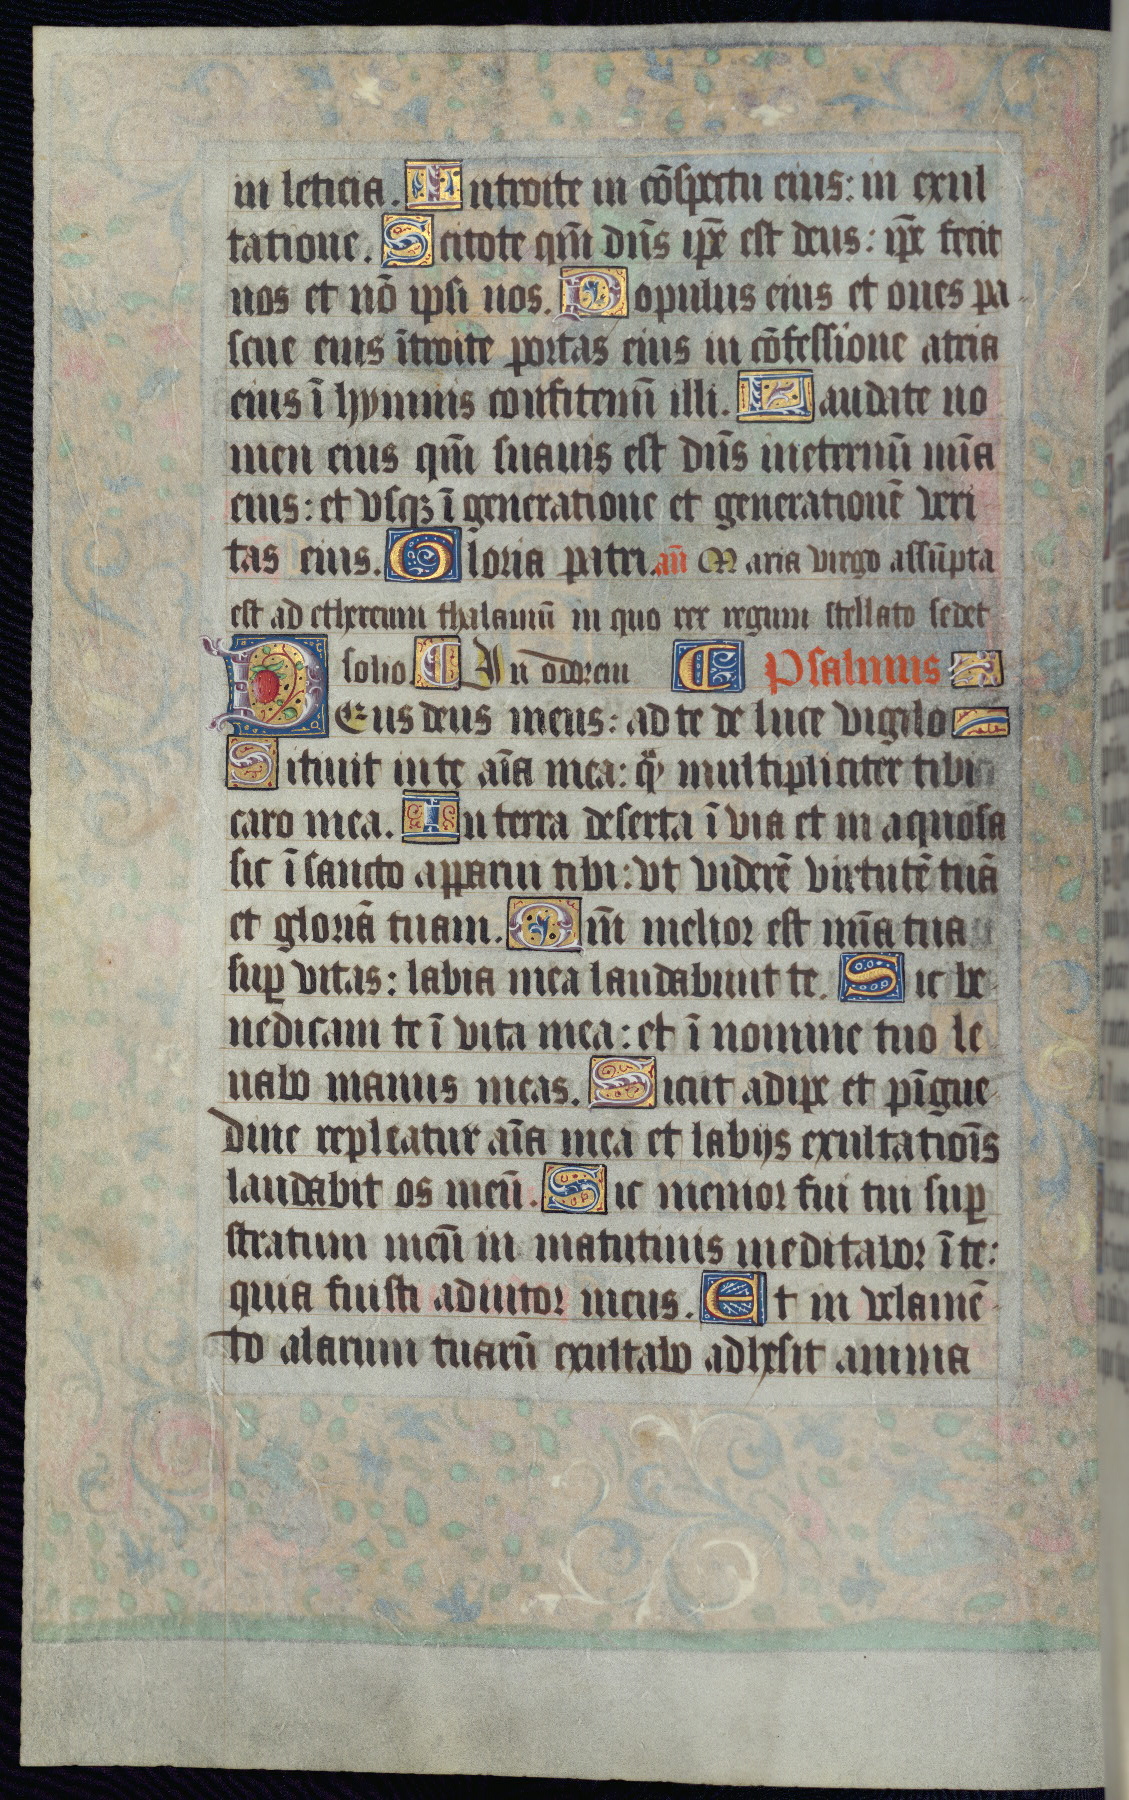 in leticia. Introite in cōspectu eius: in exul
tatione. Scitote qm̄ dn̄s ip̄e est deus: ip̄e fecit
nos et nō ipsi nos. Populus eius et oues pa
scue eius ītroite portas eius in cōfessione atria
eius ī hymnis confitemī illi. Laudate no
men eius qm̄ suauis est dn̄s ineternū mīa
eius: et vsqꝫ ī generatione et generationē veri
tas eius. Gloria patri. añ Maria virgo assūpta
est ad ethereum thalamū in quo rex regum stellato sedet
solio In odorem Psalmus
Deus deus meus: ad te de luce vigilo
Sitiuit in te aīa mea: q̄ multipliciter tibi
caro mea. In terra deserta ī via et in aquosa
sic ī sancto apparui tibi: vt viderē virtutē tuā
et gloriā tuam. Qm̄ melior est mīa tua
suꝑ vitas: labia mea laudabunt te. Sic be
nedicam te ī vita mea: et ī nomine tuo le
uabo manus meas. Sicut adipe et pīgue
dine repleatur aīa mea et labijs exultatiōis
laudabit os meū. Sic memor fui tui suꝑ
stratum meū in matutinis meditabor ī te:
quia fuisti adiutor meus. Et in velamē
to alarum tuarū exultabo adhesit anima